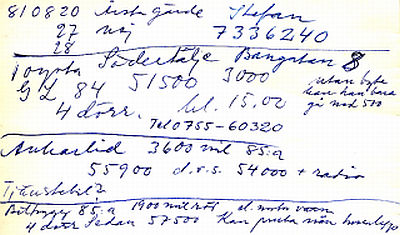 810820 Årsta gärde Stefan
27 nej 7336240
28
Toyota Södertälje Bangatan 8
GL 84 51500 3000 utan byte
kan han bara
4 dörr. kl. 15.00 gå ned 500
Tel 0755-60320
Ankarlid 3600 mil 85:a
55900 d.v.s. 54000 + radio
Tjänstebil?
85:a 1900 mil röd el. motor värm
4 dörr Sedan 57500 Kan pruta